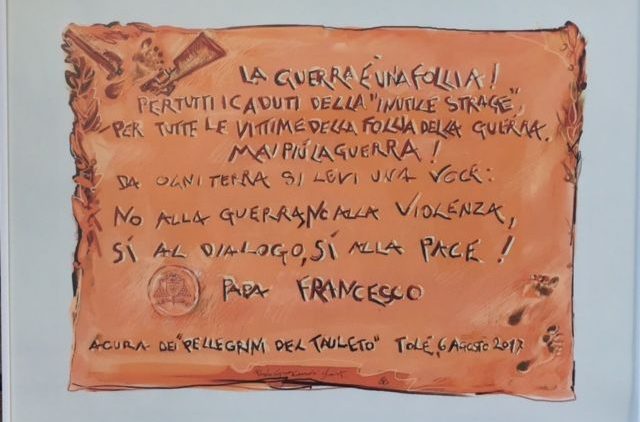 LA GUERRA È UNA FOLLIA!
PER TUTTI I CADUTI DELLA "INUTILE STRAGE",
PER TUTTE LE VITTIME DELLA FOLLIA DELLA GUERRA.
MAI PIÙ LA GUERRA!
DA OGNI TERRA SI LEVI UNA VOCE:
NO ALLA GUERRA, NO ALLA VIOLENZA,
SÍ AL DIALOGO, SÍ ALLA PACE!
PAPA FRANCESCO
A CURA DEI "PELLEGRINI DEL TAULETO" TOLÈ, 6 AGOSTO 2017